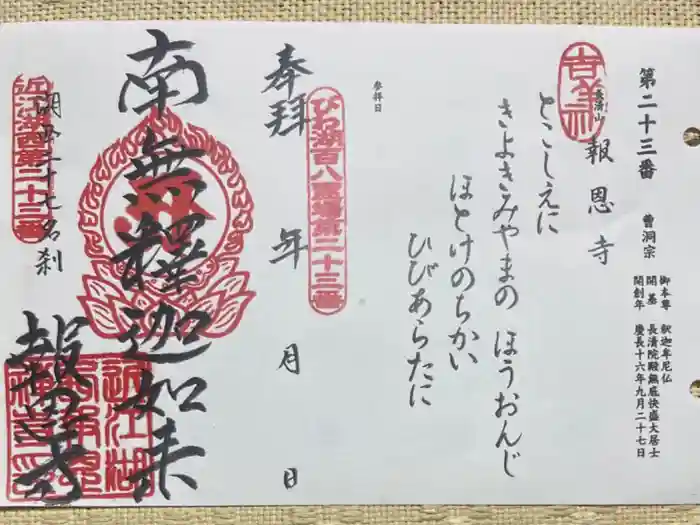 第二十三番 曹洞宗
御本尊 釈迦牟尼仏
開基 長清院殿無底快盛大居士
開創年 慶長十六年九月二十七日
長清山
報恩寺
とこしえに
きよきみやまの ほうおんじ
ほとけのちかい
ひびあらたに
参拝日
奉拝 年 月 日
びわ湖百八霊場第二十三番
南無釋迦如来
近江湖西第二十三番
湖西二十七名刹
報恩寺